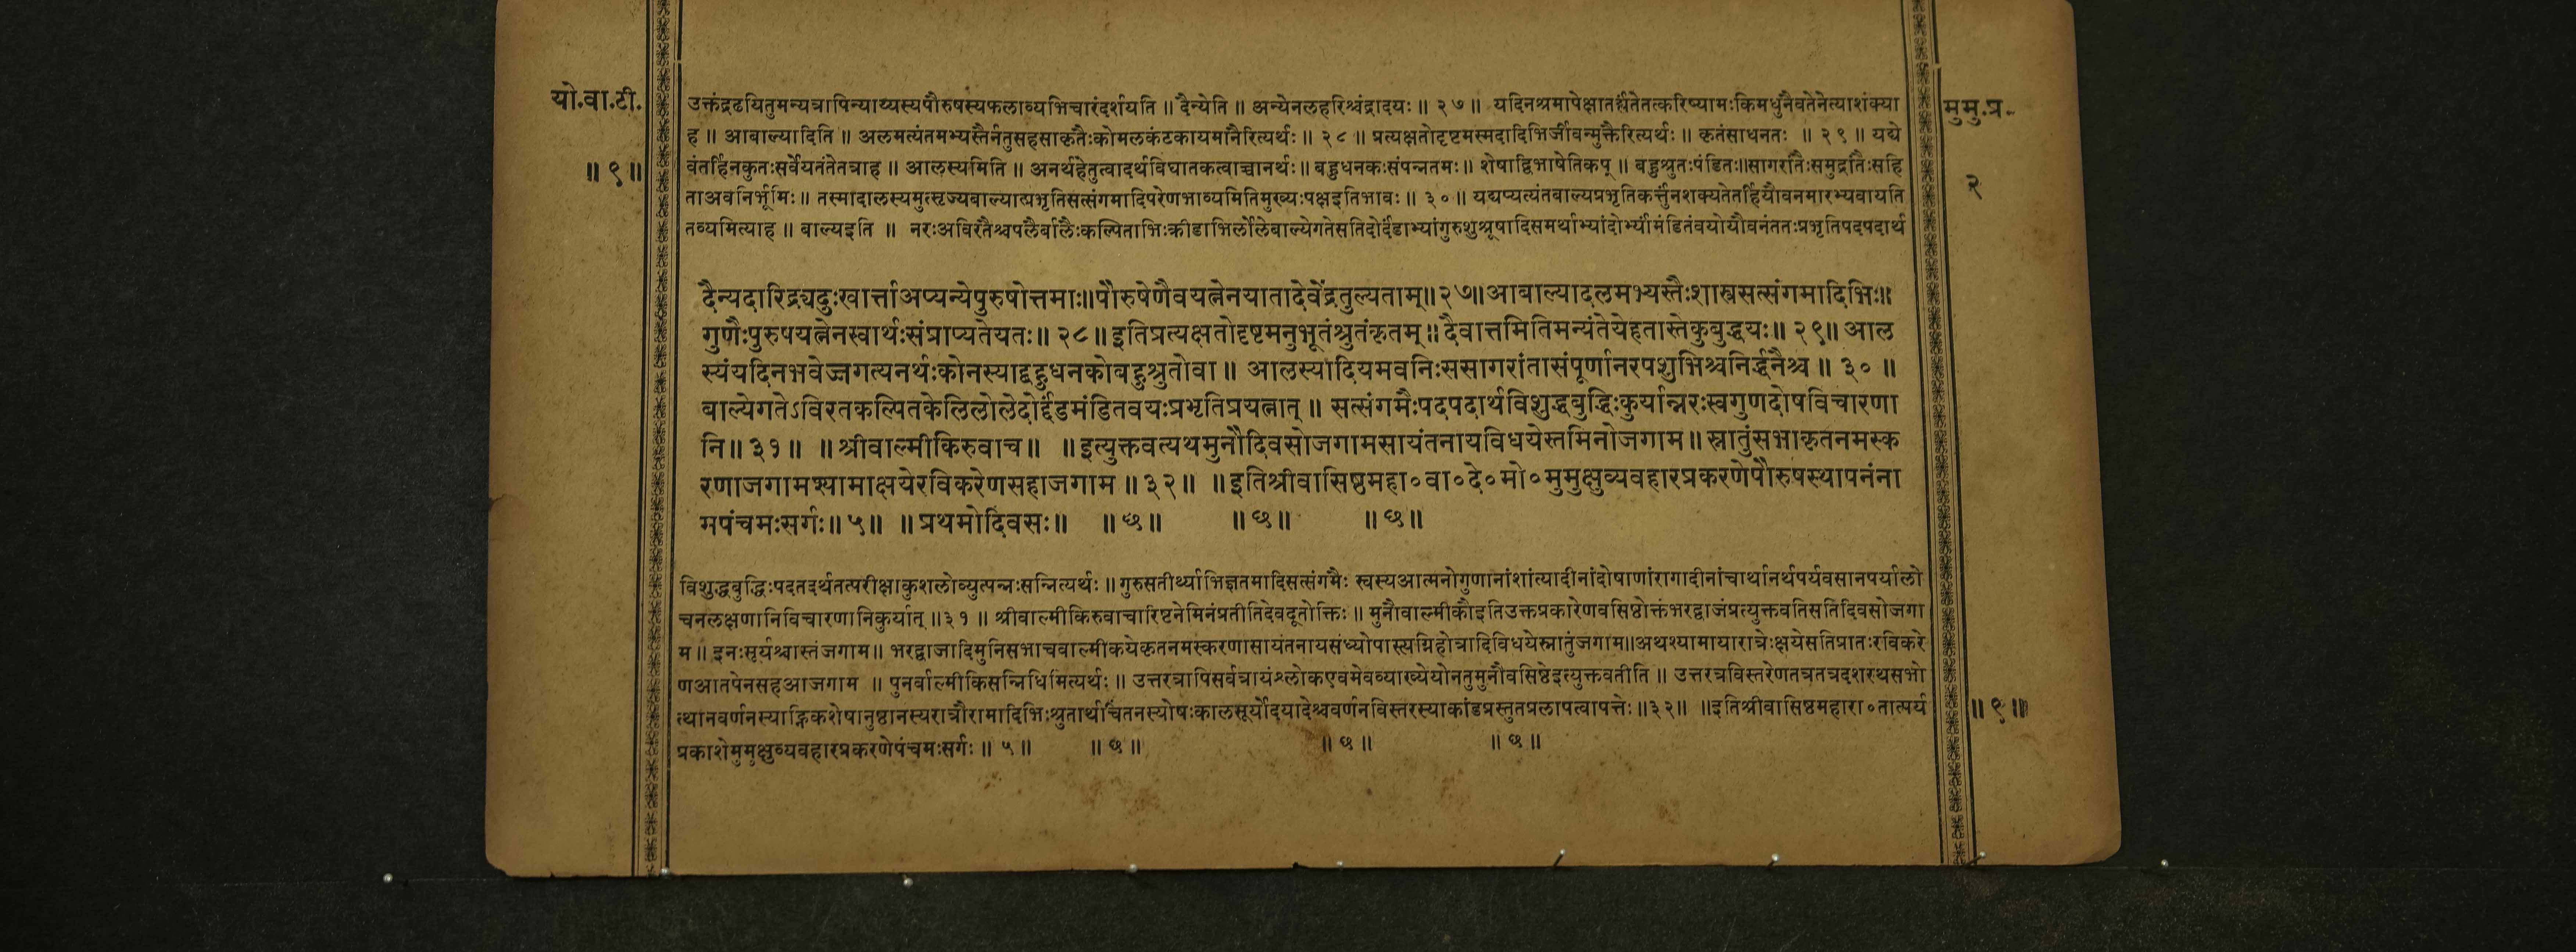 यो.वा.टी.
॥ ९ ॥
मुमु.प्र.
२
उक्तंद्रढयितुमन्यत्रापिन्याय्यस्यपौरुषस्यफलाव्यभिचारंदर्शयति ॥ दैन्येति ॥ अन्येनलहरिश्चंद्रादयः ॥ २७ ॥ यदिनश्रमापेक्षातर्ह्यतेतत्करिष्यामःकिमधुनैवतेनेत्याशंक्या
ह ॥ आबाल्यादिति ॥ अलमत्यंतमभ्यस्तैर्नतुसहसाकृतैःकोमलकंटकायमानैरित्यर्थः ॥ २८ ॥ प्रत्यक्षतोदृष्टमस्मदादिभिर्जीवन्मुक्तैरित्यर्थः ॥ कृतंसाधनतः ॥ २९ ॥ यद्ये
वंतर्हिनकुतःसर्वेयतंतेतत्राह ॥ आलस्यमिति ॥ अनर्थहेतुत्वादर्थविघातकत्वाच्चानर्थः ॥ बहुधनकःसंपन्नतमः ॥ शेषाद्विभाषेतिकप् ॥ बहुश्रुतःपंडितः॥सागरांतैःसमुद्रांतैःसहि
ताअवनिर्भूमिः ॥ तस्मादालस्यमुत्सृज्यबाल्यात्प्रभृतिसत्संगमादिपरेणभाव्यमितिमुख्यःपक्षइतिभावः ॥ ३० ॥ यद्यप्यत्यंतबाल्यप्रभृतिकर्त्तुंनशक्यतेतर्हियौवनमारभ्यवायति
तव्यमित्याह ॥ बाल्यइति ॥ नरःअविरतैश्चपलैर्बालैःकल्पिताभिःक्रीडाभिर्लोलेबाल्येगतेसतिदोर्दंडाभ्यांगुरुशुश्रूषादिसमर्थाभ्यांदोर्भ्यांमंडितंवयोयौवनंततःप्रभृतिपदपदार्थ
दैन्यदारिद्र्यदुःखार्त्ताअप्यन्येपुरुषोत्तमाः॥पौरुषेणैवयत्नेनयातादेवेंद्रतुल्यताम्॥२७॥आबाल्यादलमभ्यस्तैःशास्त्रसत्संगमादिभिः॥
गुणैःपुरुषयत्नेनस्वार्थःसंप्राप्यतेयतः॥ २८॥ इतिप्रत्यक्षतोदृष्टमनुभूतंश्रुतंकृतम्॥ दैवात्तमितिमन्यंतेयेहतास्तेकुबुद्धयः॥ २९॥ आल
स्यंयदिनभवेज्जगत्यनर्थःकोनस्याद्बहुधनकोबहुश्रुतोवा ॥ आलस्यादियमवनिःससागरांतासंपूर्णानरपशुभिश्चनिर्द्धनैश्च ॥ ३० ॥
बाल्येगतेऽविरतकल्पितकेलिलोलेदोर्द्दंडमंडितवयःप्रभृतिप्रयत्नात् ॥ सत्संगमैःपदपदार्थविशुद्धबुद्धिःकुर्यान्नरःस्वगुणदोषविचारणा
नि॥ ३१॥ ॥ श्रीवाल्मीकिरुवाच॥ ॥ इत्युक्तवत्यथमुनौदिवसोजगामसायंतनायविधयेस्तमिनोजगाम॥ स्नातुंसभाकृतनमस्क
रणाजगामश्यामाक्षयेरविकरेणसहाजगाम ॥ ३२॥ ॥ इतिश्रीवासिष्ठमहा०वा०दे०मो०मुमुक्षुव्यवहारप्रकरणेपौरुषस्थापनंना
मपंचमःसर्गः॥ ५॥ ॥ प्रथमोदिवसः॥ ॥ छ॥ ॥ छ॥ ॥ छ॥
विशुद्धबुद्धिःपदतदर्थतत्परीक्षाकुशलोव्युत्पन्नःसन्नित्यर्थः ॥ गुरुसतीर्थ्याभिज्ञतमादिसत्संगमैः स्वस्यआत्मनोगुणानांशांत्यादीनांदोषाणांरागादीनांचार्थानर्थपर्यवसानपर्यालो
चनलक्षणानिविचारणानिकुर्यात् ॥३१ ॥ श्रीवाल्मीकिरुवाचारिष्टनेमिनंप्रतीतिदेवदूतोक्तिः ॥ मुनौवाल्मीकौइतिउक्तप्रकारेणवसिष्ठोक्तंभरद्वाजंप्रत्युक्तवतिसतिदिवसोजगा
म ॥ इनःसूर्यश्चास्तंजगाम॥ भरद्वाजादिमुनिसभाचवाल्मीकयेकृतनमस्करणासायंतनायसंध्योपास्त्यग्निहोत्रादिविधयेस्नातुंजगाम॥अथश्यामायारात्रेःक्षयेसतिप्रातःरविकरे
णआतपेनसहआजगाम ॥ पुनर्वाल्मीकिसन्निधिमित्यर्थः ॥ उत्तरत्रापिसर्वत्रायंश्लोकएवमेवव्याख्येयोनतुमुनौवसिष्ठेइत्युक्तवतीति ॥ उत्तरत्रविस्तरेणतत्रतत्रदशरथसभो
त्थानवर्णनस्याह्निकशेषानुष्ठानस्यरात्रौरामादिभिःश्रुतार्थचिंतनस्योषःकालसूर्योदयादेश्चवर्णनविस्तरस्याकांडप्रस्तुतप्रलापत्वापत्तेः ॥३२॥ ॥इतिश्रीवासिष्ठमहारा०तात्पर्य
प्रकाशेमुमुक्षुव्यवहारप्रकरणेपंचमःसर्गः ॥ ५ ॥ ॥ छ ॥ ॥ छ ॥ ॥ छ ॥
॥ ९ ॥